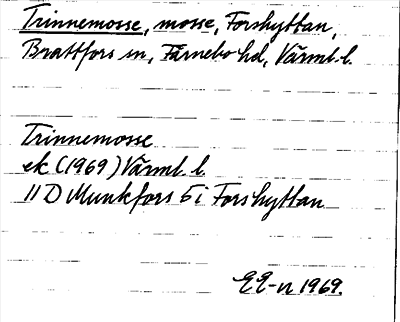 Trinnemosse, mosse, Forshyttan,
Brattfors sn, Färnebo hd, Värml. l.
Trinnemosse
ek (1969) Värml. l.
11 D Munkfors 5 i Forshyttan
EE-n 1969.